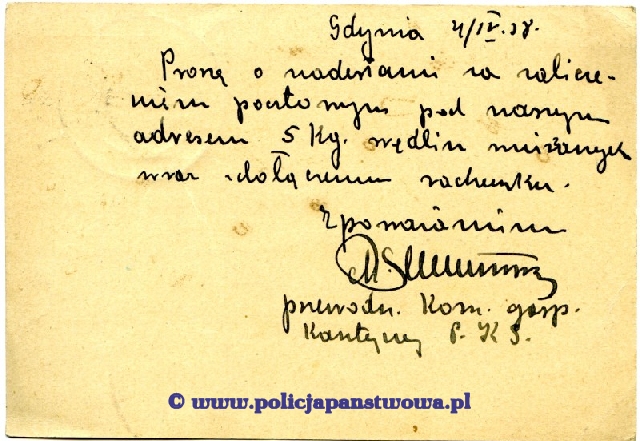 Gdynia 4/IV.38.
Proszę o nadesłanie za zalicze-
niem pocztowym pod naszym
adresem 5 Kg. wędlin mieszanych
wraz z dołączeniem rachunku.
Z poważaniem
przewodn. Kom. gosp.
Kantyny P. K S.
© www.policjapanstwowa.pl